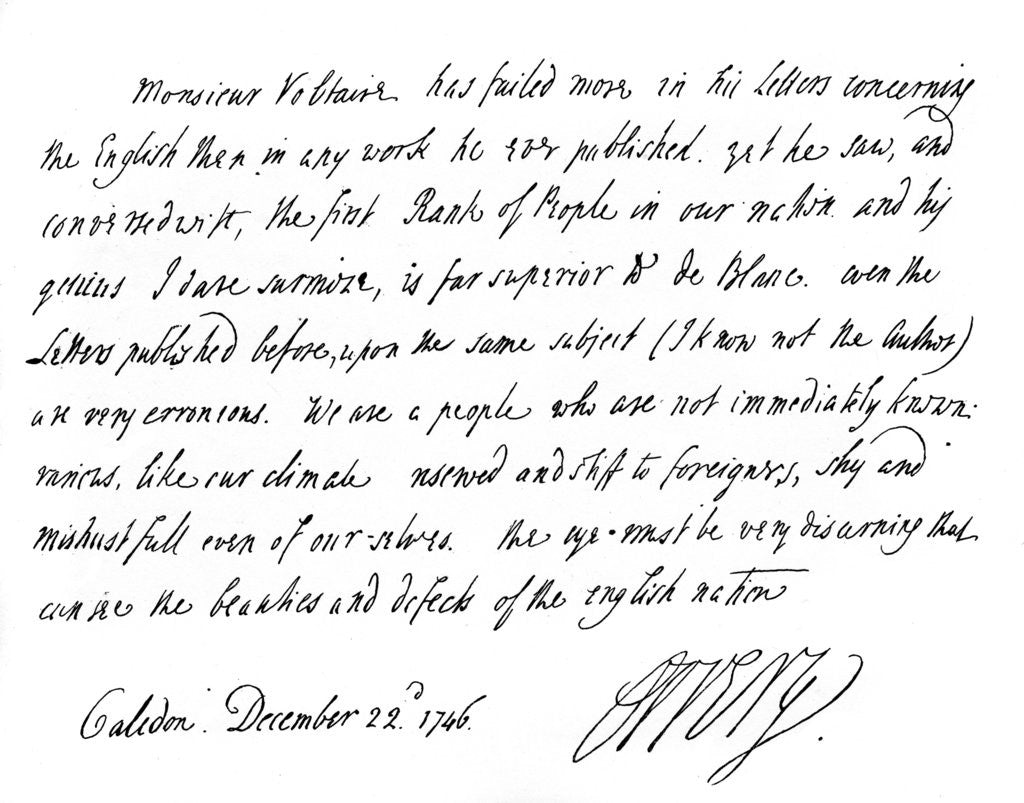 Monsieur Voltaire has failed more in his Letters concerning
the English then in any work he ever published. yet he saw, and
conversed with, the first Rank of People in our nation. and his
genius I dare surmize, is far superior to de Blanc. even the
Letters published before, upon the same subject (I know not the Author)
are very erroneous. We are a people who are not immediately known.
various, like our climate reserved and stiff to foreigners, shy and
mistrustfull even of our-selves. the eye must be very discerning that
can see the beauties and defects of the english nation
Caledon. December 22d. 1746.
Orrery.